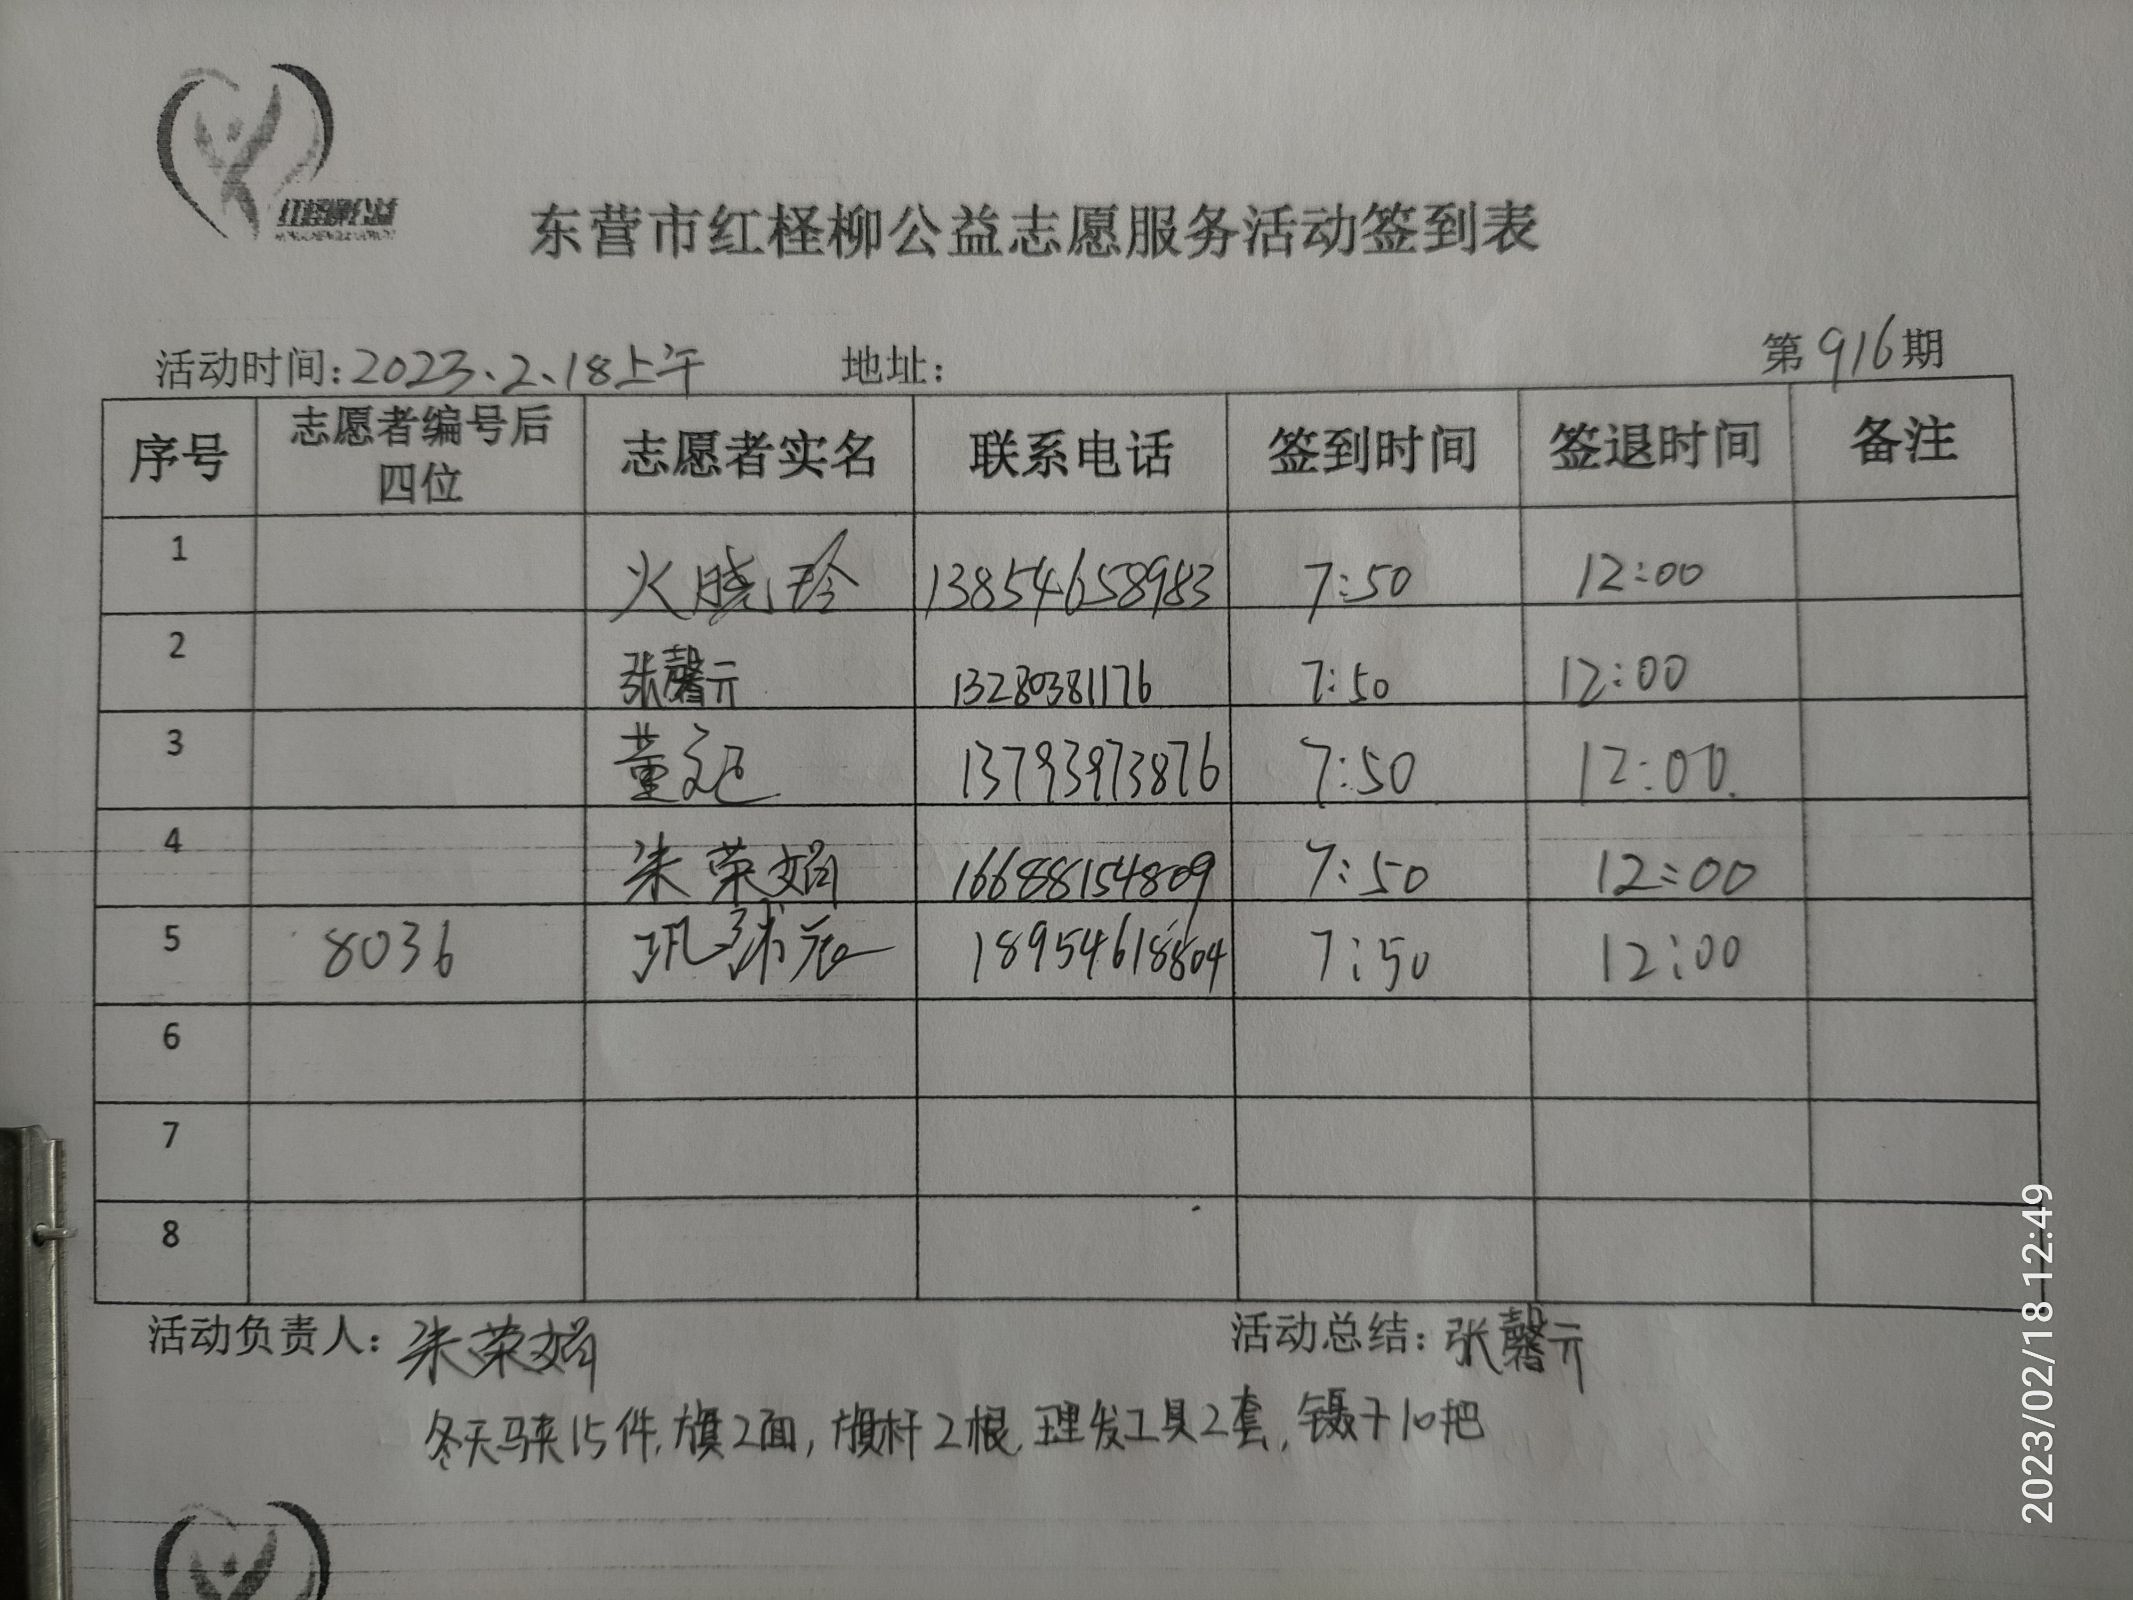 红柽柳公益
东营市红柽柳公益志愿服务活动签到表
活动时间:2023.2.18上午 地址: 第916期
序号 志愿者编号后四位 志愿者实名 联系电话 签到时间 签退时间 备注
1 火晓玲 13854658983 7:50 12:00
2 张馨元 13280381176 7:50 12:00
3 董 13793973876 7:50 12:00
4 朱荣娟 16688154809 7:50 12:00
5 8036 巩 18954618804 7:50 12:00
6
7
8
活动负责人: 朱荣娟 活动总结: 张馨元
冬天马夹15件,旗2面,旗杆2根,理发工具2套,镊子10把
2023/02/18 12:49